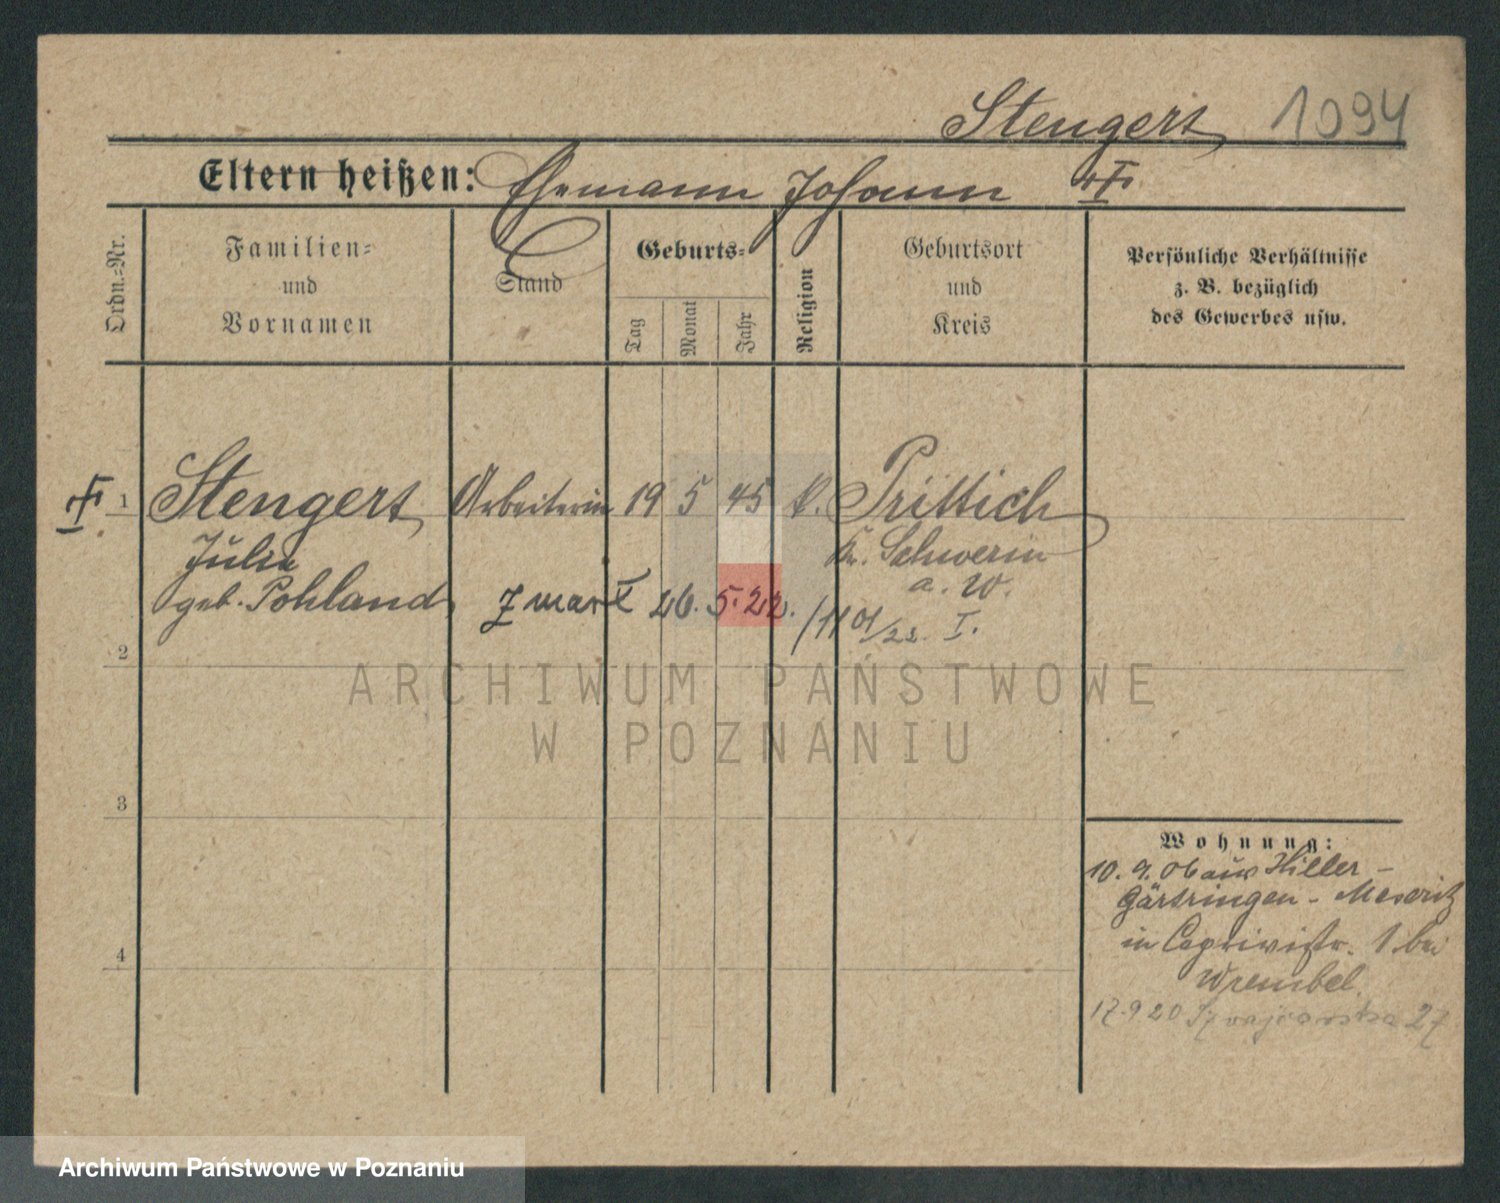 Stengert 1094
Eltern heißen: Ehemann Johann
Ordn.=Nr.
Familien=
und
Vornamen
Stand
Geburts=
Tag
Monat
Jahr
Religion
Geburtsort
und
Kreis
Persönliche Verhältnisse
z. B. bezüglich
des Gewerbes usw.
1 Stengert Arbeiterin 19 5 45 k. Prittich
Julie Kr. Schwerin
geb. Pohland a. W.
26. 5. 22.
2
ARCHIWUM PAŃSTWOWE
W POZNANIU
3
Wohnung:
10. 9. 06 aus Hiller-
Gärtringen - Meseritz
in Caprivistr. 1 bei
Wrembel.
17.9 20 27
4
Archiwum Państwowe w Poznaniu